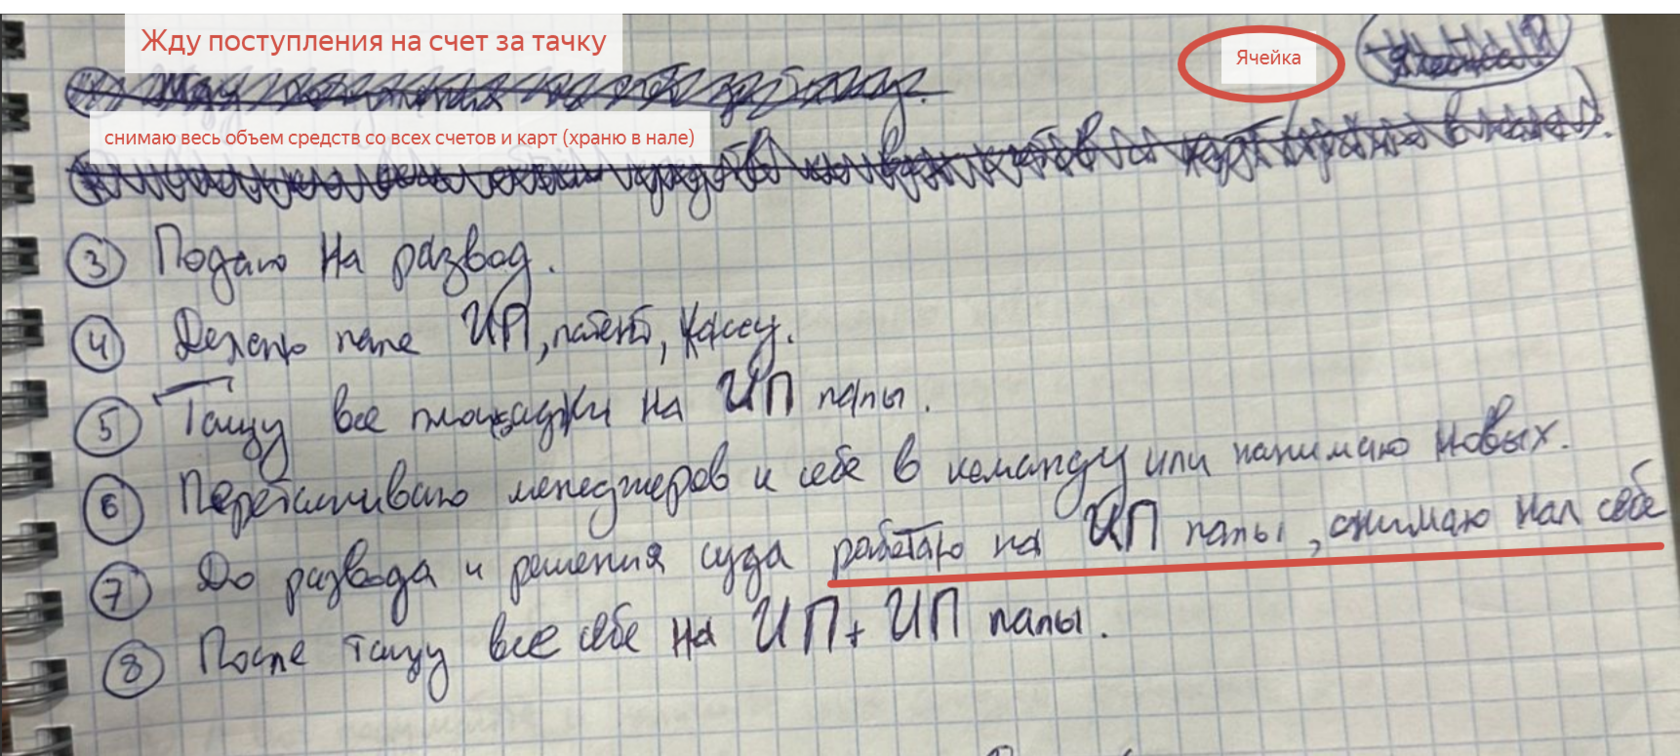 Жду поступления на счет за тачку
Ячейка
снимаю весь объем средств со всех счетов и карт (храню в нале)
3 Подаю на развод.
4 Делаю папе ИП, патент, кассу.
5 Тащу все площадки на ИП папы.
6 Перетягиваю менеджеров к себе в команду или нанимаю новых.
7 До развода и решения суда работаю на ИП папы, снимаю нал себе
8 После тащу все себе на ИП + ИП папы.